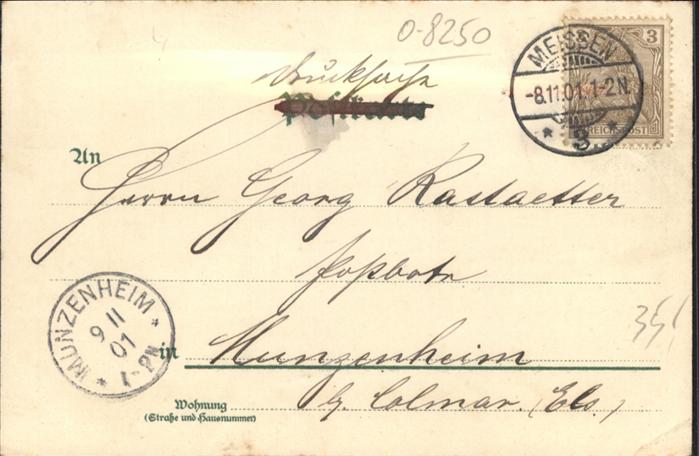 0-8250
MEISSEN
-8.11.01.1-2N.
* 3 *
3
REICHSPOST
Drucksache
Postkarte
An
Herrn Georg Rastaetter
Postbote
MUNZENHEIM
9 11
01
1-2N
in Munzenheim
b/ Colmar. (Els.)
Wohnung
(Straße und Hausnummer)